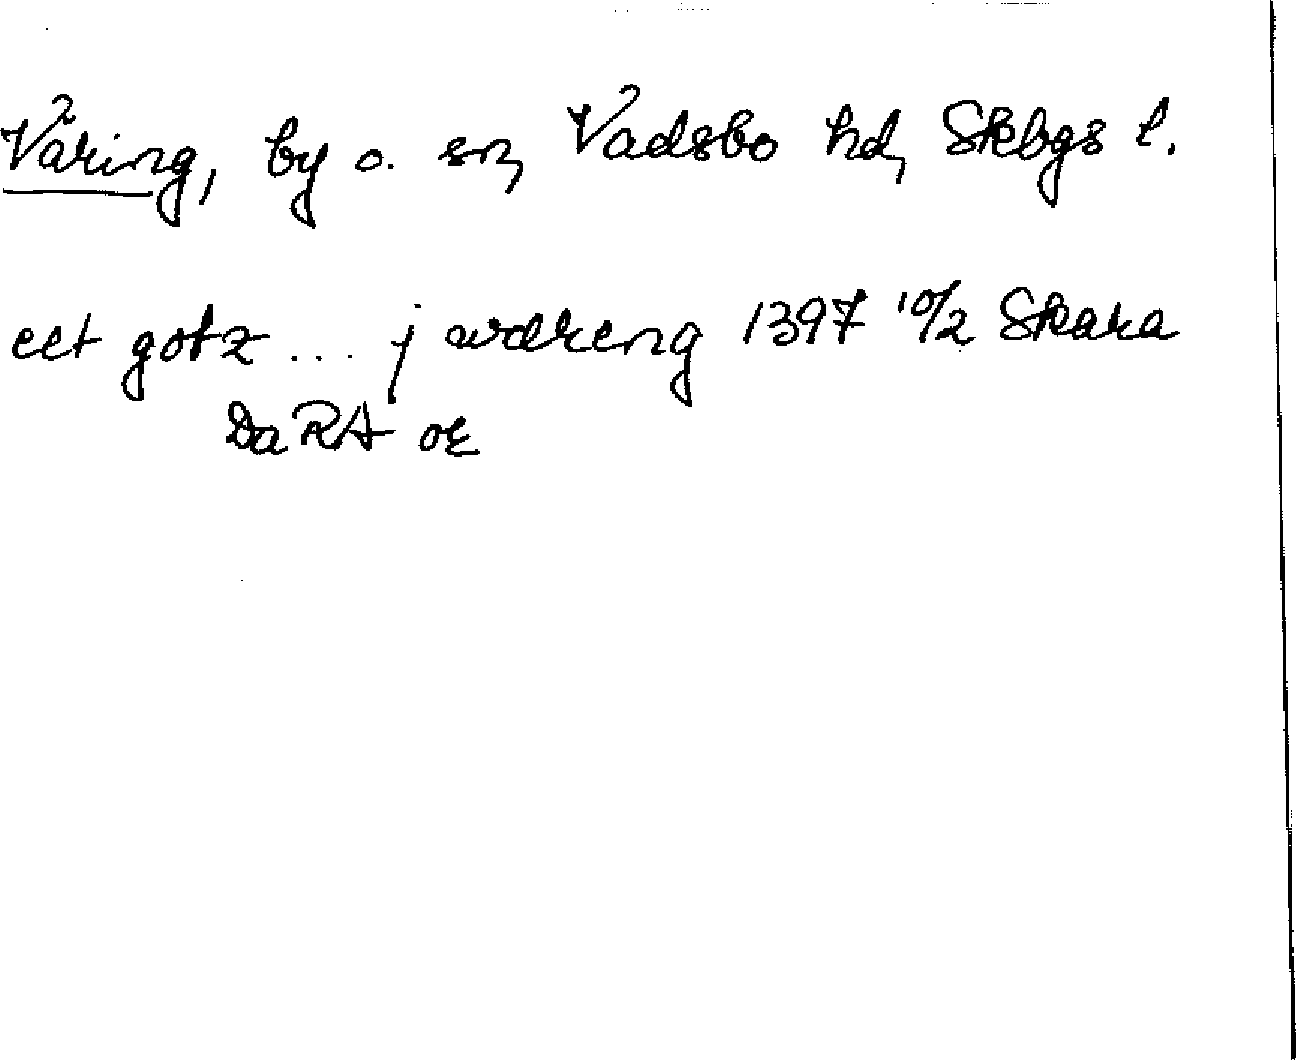 Väring, by o. sn, Vadsbo hd, Skbgs l.
eet gotz ... j wdhreng 1397 10/2 Skara
DaRA or